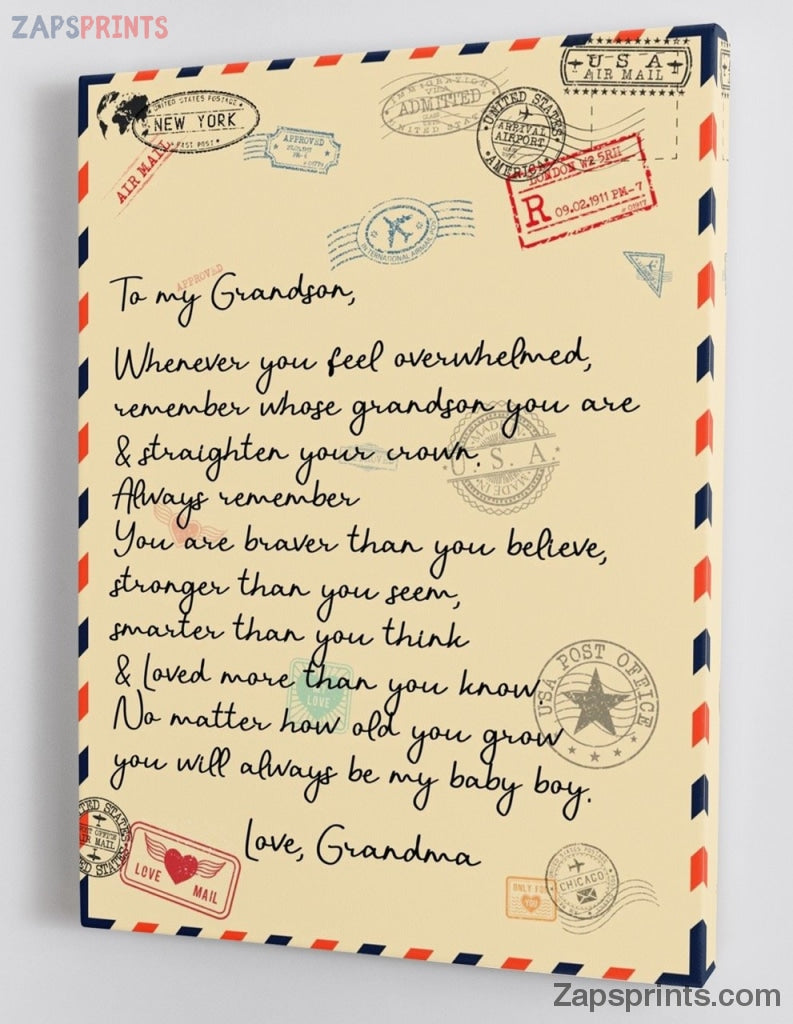 ZAPSPRINTS
USA
AIR MAIL
UNITED STATES POSTAGE
NEW YORK
FAST POST
AIR MAIL
APPROVED
IMMIGRATION
ADMITTED
UNITED STATES
UNITED STATES
ARRIVAL
AIRPORT
AMERICA
LONDON W2 5RH
R 09.02.1911 PM-7
INTERNATIONAL AIRMAIL
APPROVED
To my Grandson,
Whenever you feel overwhelmed,
remember whose grandson you are
& straighten your crown.
MADE IN
U.S.A.
MADE IN
Always remember
You are braver than you believe,
stronger than you seem,
smarter than you think
& Loved more than you know
LOVE
USA POST OFFICE
No matter how old you grow
you will always be my baby boy.
Love, Grandma
UNITED STATES
POST OFFICE
AIR MAIL
UNITED STATES
LOVE MAIL
ONLY FOR
YOU
UNITED STATES POSTAGE
CHICAGO
Zapsprints.com